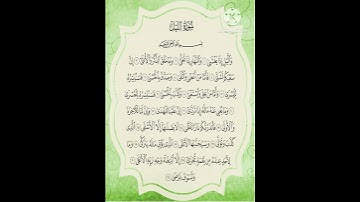 سُورَةُ اللَّيْلِ
بِسْمِ اللَّهِ الرَّحْمَٰنِ الرَّحِيمِ
وَالَّيْلِ إِذَا يَغْشَىٰ ١ وَالنَّهَارِ إِذَا تَجَلَّىٰ ٢ وَمَا خَلَقَ الذَّكَرَ وَالْأُنثَىٰ ٣ إِنَّ
سَعْيَكُمْ لَشَتَّىٰ ٤ فَأَمَّا مَنْ أَعْطَىٰ وَاتَّقَىٰ ٥ وَصَدَّقَ بِالْحُسْنَىٰ ٦ فَسَنُيَسِّرُهُ
لِلْيُسْرَىٰ ٧ وَأَمَّا مَنْ بَخِلَ وَاسْتَغْنَىٰ ٨ وَكَذَّبَ بِالْحُسْنَىٰ ٩ فَسَنُيَسِّرُهُ لِلْعُسْرَىٰ
١٠ وَمَا يُغْنِي عَنْهُ مَالُهُ إِذَا تَرَدَّىٰ ١١ إِنَّ عَلَيْنَا لَلْهُدَىٰ ١٢ وَإِنَّ لَنَا لَلْآخِرَةَ
وَالْأُولَىٰ ١٣ فَأَنذَرْتُكُمْ نَارًا تَلَظَّىٰ ١٤ لَا يَصْلَاهَا إِلَّا الْأَشْقَى ١٥ الَّذِي
كَذَّبَ وَتَوَلَّىٰ ١٦ وَسَيُجَنَّبُهَا الْأَتْقَى ١٧ الَّذِي يُؤْتِي مَالَهُ يَتَزَكَّىٰ ١٨ وَمَا
لِأَحَدٍ عِندَهُ مِن نِّعْمَةٍ تُجْزَىٰ ١٩ إِلَّا ابْتِغَاءَ وَجْهِ رَبِّهِ الْأَعْلَىٰ ٢٠
وَلَسَوْفَ يَرْضَىٰ ٢١